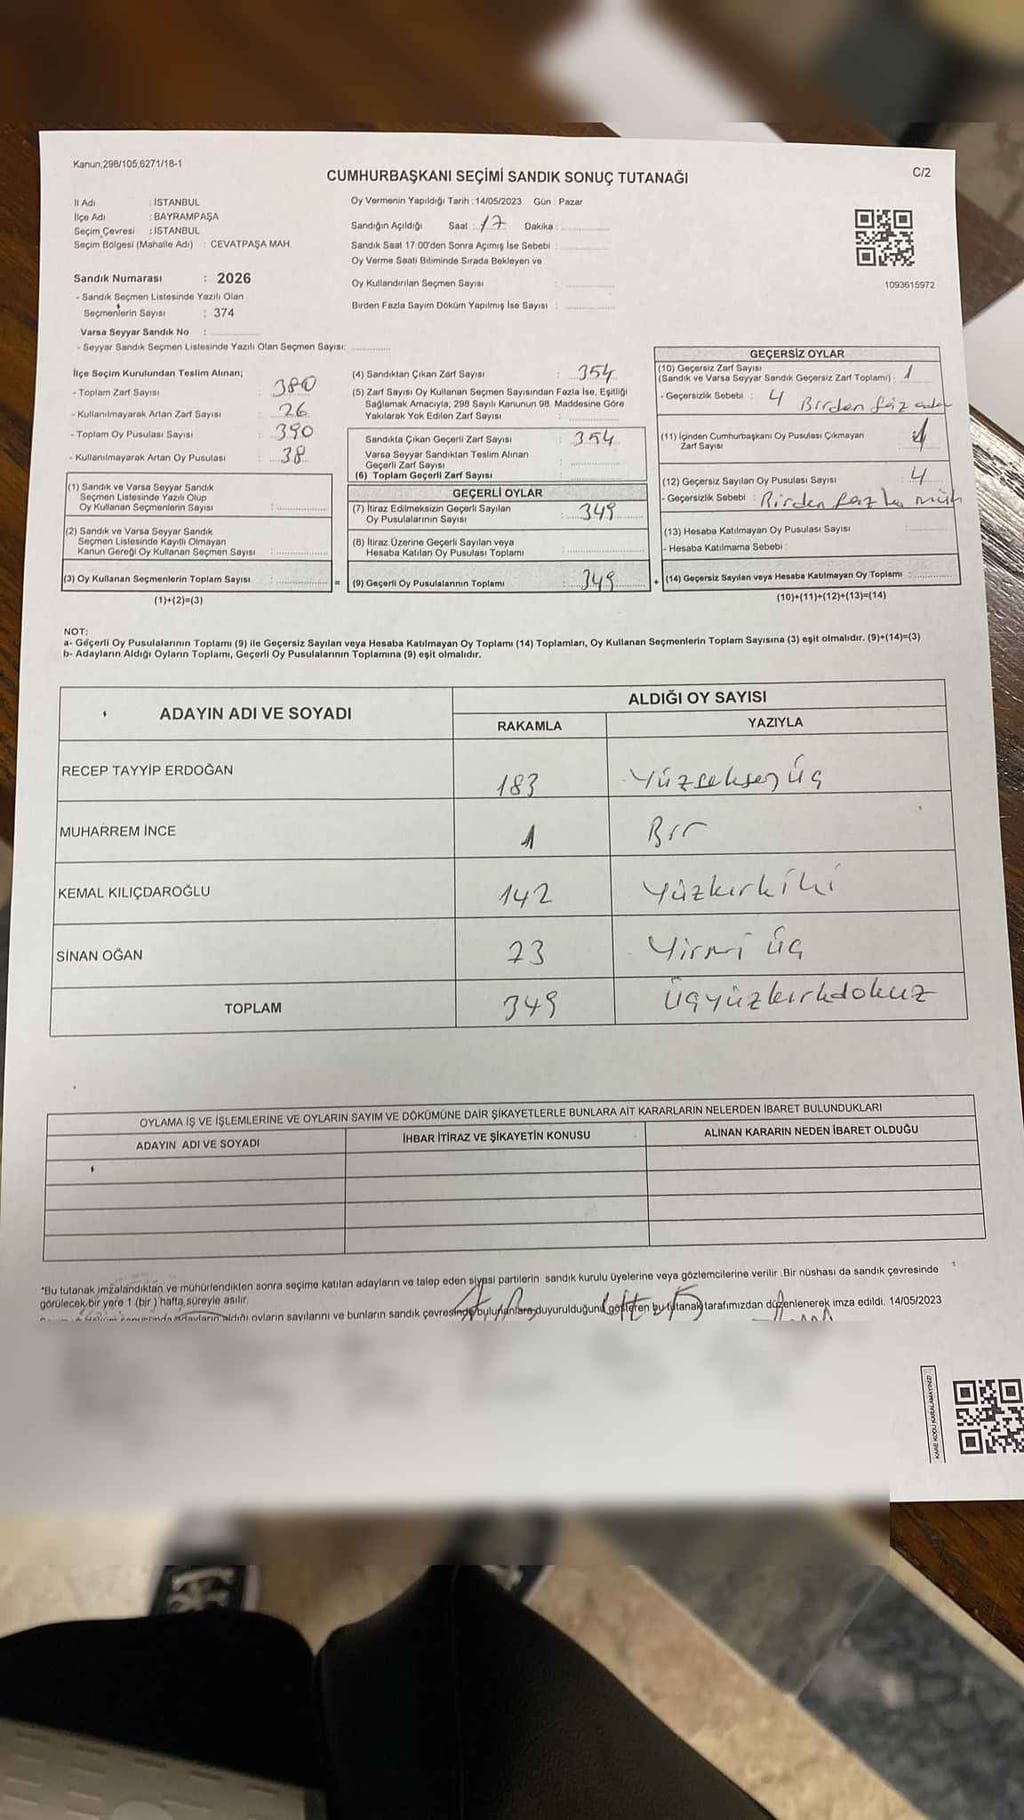 Kanun.298/105,6271/18-1
CUMHURBAŞKANI SEÇİMİ SANDIK SONUÇ TUTANAĞI
C/2
İl Adı : İSTANBUL
İlçe Adı : BAYRAMPAŞA
Seçim Çevresi : İSTANBUL
Seçim Bölgesi (Mahalle Adı) : CEVATPAŞA MAH.
Sandık Numarası : 2026
- Sandık Seçmen Listesinde Yazılı Olan
Seçmenlerin Sayısı : 374
Varsa Seyyar Sandık No :
- Seyyar Sandık Seçmen Listesinde Yazılı Olan Seçmen Sayısı:
Oy Vermenin Yapıldığı Tarih : 14/05/2023 Gün : Pazar
Sandığın Açıldığı Saat : 17 Dakika :
Sandık Saat 17:00'den Sonra Açımış İse Sebebi :
Oy Verme Saati Bitiminde Sırada Bekleyen ve
Oy Kullandırılan Seçmen Sayısı :
Birden Fazla Sayım Döküm Yapılmış İse Sayısı :
1093615972
İlçe Seçim Kurulundan Teslim Alınan;
- Toplam Zarf Sayısı : 380
- Kullanılmayarak Artan Zarf Sayısı : 26
- Toplam Oy Pusulası Sayısı : 390
- Kullanılmayarak Artan Oy Pusulası : 38
(1) Sandık ve Varsa Seyyar Sandık
Seçmen Listesinde Yazılı Olup
Oy Kullanan Seçmenlerin Sayısı :
(2) Sandık ve Varsa Seyyar Sandık
Seçmen Listesinde Kayıtlı Olmayan
Kanun Gereği Oy Kullanan Seçmen Sayısı :
(3) Oy Kullanan Seçmenlerin Toplam Sayısı : =
(1)+(2)=(3)
(4) Sandıktan Çıkan Zarf Sayısı : 354
(5) Zarf Sayısı Oy Kullanan Seçmen Sayısından Fazla İse, Eşitliği
Sağlamak Amacıyla, 298 Sayılı Kanunun 98. Maddesine Göre
Yakılarak Yok Edilen Zarf Sayısı :
Sandıkta Çıkan Geçerli Zarf Sayısı : 354
Varsa Seyyar Sandıktan Teslim Alınan
Geçerli Zarf Sayısı :
(6) Toplam Geçerli Zarf Sayısı :
GEÇERLİ OYLAR
(7) İtiraz Edilmeksizin Geçerli Sayılan
Oy Pusulalarının Sayısı : 349
(8) İtiraz Üzerine Geçerli Sayılan veya
Hesaba Katılan Oy Pusulası Toplamı :
(9) Geçerli Oy Pusulalarının Toplamı : 349 +
GEÇERSİZ OYLAR
(10) Geçersiz Zarf Sayısı
(Sandık ve Varsa Seyyar Sandık Geçersiz Zarf Toplamı) : 1
- Geçersizlik Sebebi : 4 Birden
(11) İçinden Cumhurbaşkanı Oy Pusulası Çıkmayan
Zarf Sayısı : 1
(12) Geçersiz Sayılan Oy Pusulası Sayısı : 4
- Geçersizlik Sebebi : Birden fazla müh
(13) Hesaba Katılmayan Oy Pusulası Sayısı :
- Hesaba Katılmama Sebebi :
(14) Geçersiz Sayılan veya Hesaba Katılmayan Oy Toplamı :
(10)+(11)+(12)+(13)=(14)
NOT:
a- Geçerli Oy Pusulalarının Toplamı (9) ile Geçersiz Sayılan veya Hesaba Katılmayan Oy Toplamı (14) Toplamları, Oy Kullanan Seçmenlerin Toplam Sayısına (3) eşit olmalıdır. (9)+(14)=(3)
b- Adayların Aldığı Oyların Toplamı, Geçerli Oy Pusulalarının Toplamına (9) eşit olmalıdır.
ADAYIN ADI VE SOYADI
ALDIĞI OY SAYISI
RAKAMLA YAZIYLA
RECEP TAYYİP ERDOĞAN 183 Yüzseksen üç
MUHARREM İNCE 1 Bir
KEMAL KILIÇDAROĞLU 142 Yüzkırkiki
SİNAN OĞAN 23 Yirmi üç
TOPLAM 349 Üçyüzkırkdokuz
OYLAMA İŞ VE İŞLEMLERİNE VE OYLARIN SAYIM VE DÖKÜMÜNE DAİR ŞİKAYETLERLE BUNLARA AİT KARARLARIN NELERDEN İBARET BULUNDUKLARI
ADAYIN ADI VE SOYADI İHBAR İTİRAZ VE ŞİKAYETİN KONUSU ALINAN KARARIN NEDEN İBARET OLDUĞU
*Bu tutanak imzalandıktan ve mühürlendikten sonra seçime katılan adayların ve talep eden siyasi partilerin sandık kurulu üyelerine veya gözlemcilerine verilir .Bir nüshası da sandık çevresinde
görülecek bir yere 1 (bir ) hafta süreyle asılır.
adayların aldığı oyların sayılarını ve bunların sandık çevresinde bulunanlara duyurulduğunu gösteren bu tutanak tarafımızdan düzenlenerek imza edildi. 14/05/2023
KARE KODU KARALAMAYINIZ!